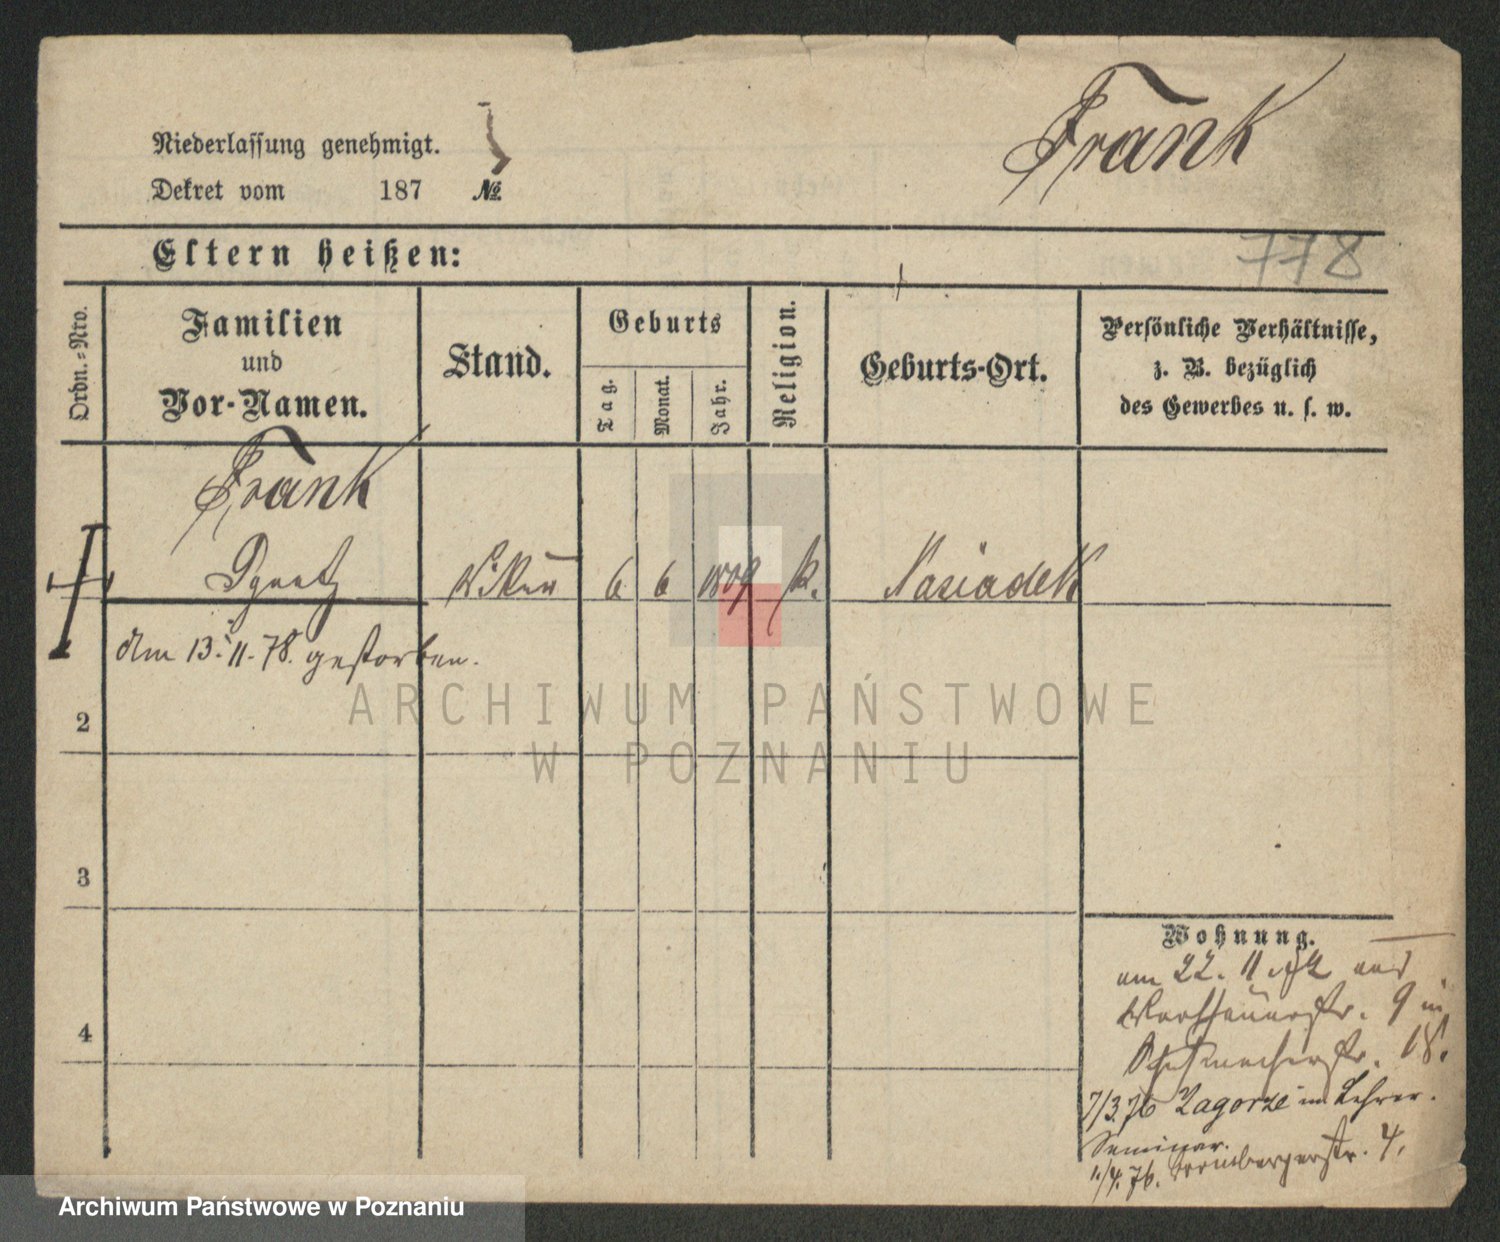 Frank
Niederlassung genehmigt.
Dekret vom 187 №
778
Eltern heißen:
Ordn.-Nro.
Familien
und
Vor-Namen.
Stand.
Geburts
Tag.
Monat.
Jahr.
Religion.
Geburts-Ort.
Persönliche Verhältnisse,
z. B. bezüglich
des Gewerbes u. s. w.
Frank
Ignatz 6 6 1809 k. Nasiadek
am 13. 11. 78. gestorben.
2
3
4
Wohnung.
am 22. 11. aus
9 in
18.
7/3.76 Zagorze im Lehrer-
Seminar.
1./4. 76. 4.
ARCHIWUM PAŃSTWOWE
W POZNANIU
Archiwum Państwowe w Poznaniu